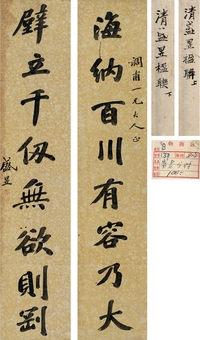 海納百川有容乃大
調甫一兄大人正
壁立千仞無欲則剛
盛昱
清盛昱楹聯上
清盛昱楹聯下